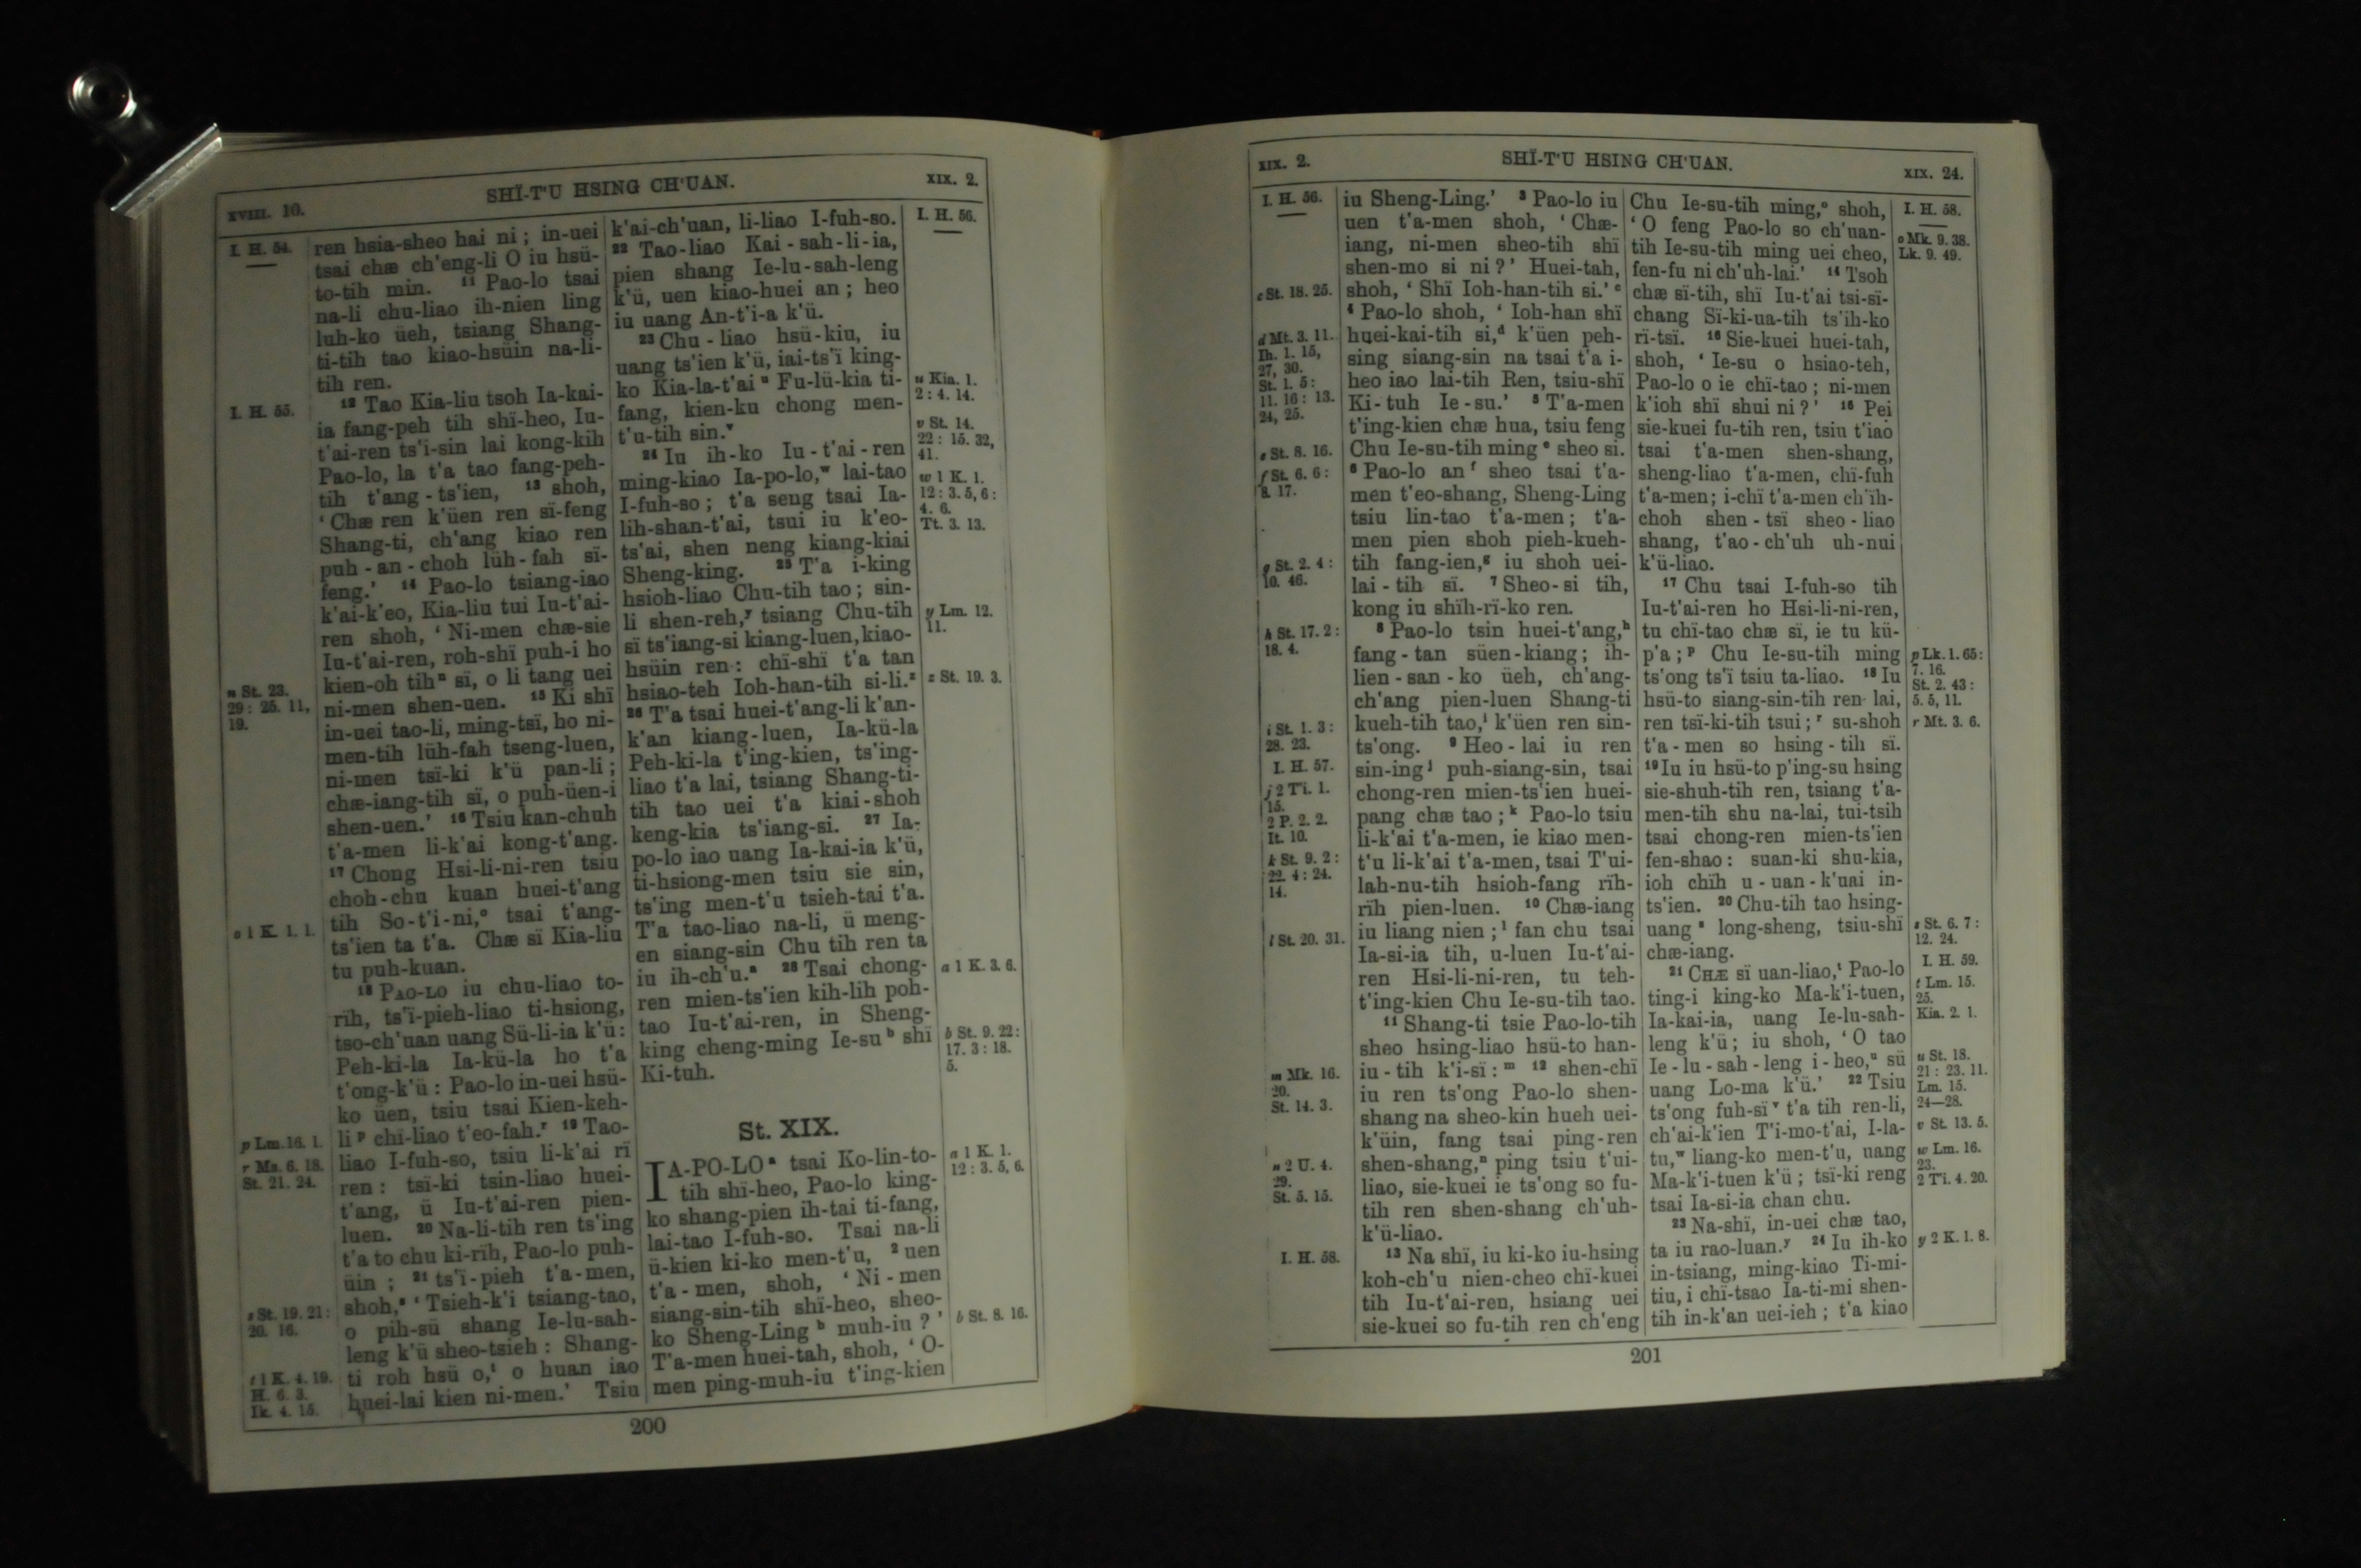 XVIII. 10.
SHÏ-T'U HSING CH'UAN.
XIX. 2.
I. H. 54.
I. H. 55.
n St. 23.
29: 25. 11,
19.
o 1 K. 1. 1.
p Lm. 16. 1.
r Ms. 6. 18.
St. 21. 24.
s St. 19. 21:
20. 16.
t 1 K. 4. 19.
H. 6. 3.
Ik. 4. 15.
ren hsia-sheo hai ni; in-uei
tsai chæ ch'eng-li O iu hsü-
to-tih min. 11 Pao-lo tsai
na-li chu-liao ih-nien ling
luh-ko üeh, tsiang Shang-
ti-tih tao kiao-hsüin na-li-
tih ren.
12 Tao Kia-liu tsoh Ia-kai-
ia fang-peh tih shï-heo, Iu-
t'ai-ren ts'i-sin lai kong-kih
Pao-lo, la t'a tao fang-peh-
tih t'ang-ts'ien, 13 shoh,
'Chæ ren k'üen ren sï-feng
Shang-ti, ch'ang kiao ren
puh-an-choh lüh-fah sï-
feng.' 14 Pao-lo tsiang-iao
k'ai-k'eo, Kia-liu tui Iu-t'ai-
ren shoh, 'Ni-men chæ-sie
Iu-t'ai-ren, roh-shï puh-i ho
kien-oh tih n sï, o li tang uei
ni-men shen-uen. 15 Ki shï
in-uei tao-li, ming-tsï, ho ni-
men-tih lüh-fah tseng-luen,
ni-men tsï-ki k'ü pan-li;
chæ-iang-tih sï, o puh-üen-i
shen-uen.' 16 Tsiu kan-chuh
t'a-men li-k'ai kong-t'ang.
17 Chong Hsi-li-ni-ren tsiu
choh-chu kuan huei-t'ang
tih So-t'i-ni, o tsai t'ang-
ts'ien ta t'a. Chæ sï Kia-liu
tu puh-kuan.
18 PAO-LO iu chu-liao to-
rïh, ts'ï-pieh-liao ti-hsiong,
tso-ch'uan uang Sü-li-ia k'ü:
Peh-ki-la Ia-kü-la ho t'a
t'ong-k'ü: Pao-lo in-uei hsü-
ko üen, tsiu tsai Kien-keh-
li p chï-liao t'eo-fah. r 19 Tao-
liao I-fuh-so, tsiu li-k'ai rï
ren: tsï-ki tsin-liao huei-
t'ang, ü Iu-t'ai-ren pien-
luen. 20 Na-li-tih ren ts'ing
t'a to chu ki-rïh, Pao-lo puh-
üin; 21 ts'ï-pieh t'a-men,
shoh, s 'Tsieh-k'i tsiang-tao,
o pih-sü shang Ie-lu-sah-
leng k'ü sheo-tsieh: Shang-
ti roh hsü o, t o huan iao
huei-lai kien ni-men.' Tsiu
k'ai-ch'uan, li-liao I-fuh-so.
22 Tao-liao Kai-sah-li-ia,
pien shang Ie-lu-sah-leng
k'ü, uen kiao-huei an; heo
iu uang An-t'i-a k'ü.
23 Chu-liao hsü-kiu, iu
uang ts'ien k'ü, iai-ts'ï king-
ko Kia-la-t'ai u Fu-lü-kia ti-
fang, kien-ku chong men-
t'u-tih sin. v
24 Iu ih-ko Iu-t'ai-ren
ming-kiao Ia-po-lo, w lai-tao
I-fuh-so; t'a seng tsai Ia-
lih-shan-t'ai, tsui iu k'eo-
ts'ai, shen neng kiang-kiai
Sheng-king. 25 T'a i-king
hsioh-liao Chu-tih tao; sin-
li shen-reh, y tsiang Chu-tih
sï ts'iang-si kiang-luen, kiao-
hsüin ren: chï-shï t'a tan
hsiao-teh Ioh-han-tih si-li. z
26 T'a tsai huei-t'ang-li k'an-
k'an kiang-luen, Ia-kü-la
Peh-ki-la t'ing-kien, ts'ing-
liao t'a lai, tsiang Shang-ti-
tih tao uei t'a kiai-shoh
keng-kia ts'iang-si. 27 Ia-
po-lo iao uang Ia-kai-ia k'ü,
ti-hsiong-men tsiu sie sin,
ts'ing men-t'u tsieh-tai t'a.
T'a tao-liao na-li, ü meng-
en siang-sin Chu tih ren ta
iu ih-ch'u. a 28 Tsai chong-
ren mien-ts'ien kih-lih poh-
tao Iu-t'ai-ren, in Sheng-
king cheng-ming Ie-su b shï
Ki-tuh.
St. XIX.
IA-PO-LO a tsai Ko-lin-to-
tih shï-heo, Pao-lo king-
ko shang-pien ih-tai ti-fang,
lai-tao I-fuh-so. Tsai na-li
ü-kien ki-ko men-t'u, 2 uen
t'a-men, shoh, 'Ni-men
siang-sin-tih shï-heo, sheo-
ko Sheng-Ling b muh-iu?'
T'a-men huei-tah, shoh, 'O-
men ping-muh-iu t'ing-kien
I. H. 56.
u Kia. 1.
2: 4. 14.
v St. 14.
22: 15. 32,
41.
w 1 K. 1.
12: 3. 5, 6:
4. 6.
Tt. 3. 13.
y Lm. 12.
11.
z St. 19. 3.
a 1 K. 3. 6.
b St. 9. 22:
17. 3: 18.
5.
a 1 K. 1.
12: 3. 5, 6.
b St. 8. 16.
200
XIX. 2.
SHÏ-T'U HSING CH'UAN.
XIX. 24.
I. H. 56.
c St. 18. 25.
d Mt. 3. 11.
Ih. 1. 15,
27, 30.
St. 1. 5:
11. 16: 13.
24, 25.
e St. 8. 16.
f St. 6. 6:
8. 17.
g St. 2. 4:
10. 46.
h St. 17. 2:
18. 4.
i St. 1. 3:
28. 23.
I. H. 57.
j 2 Ti. 1.
15.
2 P. 2. 2.
It. 10.
k St. 9. 2:
22. 4: 24.
14.
l St. 20. 31.
m Mk. 16.
20.
St. 14. 3.
n 2 U. 4.
29.
St. 5. 15.
I. H. 58.
iu Sheng-Ling.' 3 Pao-lo iu
uen t'a-men shoh, 'Chæ-
iang, ni-men sheo-tih shï
shen-mo si ni?' Huei-tah,
shoh, 'Shï Ioh-han-tih si.' c
4 Pao-lo shoh, 'Ioh-han shï
huei-kai-tih si, d k'üen peh-
sing siang-sin na tsai t'a i-
heo iao lai-tih Ren, tsiu-shï
Ki-tuh Ie-su.' 5 T'a-men
t'ing-kien chæ hua, tsiu feng
Chu Ie-su-tih ming e sheo si.
6 Pao-lo an f sheo tsai t'a-
men t'eo-shang, Sheng-Ling
tsiu lin-tao t'a-men; t'a-
men pien shoh pieh-kueh-
tih fang-ien, g iu shoh uei-
lai-tih sï. 7 Sheo-si tih,
kong iu shïh-rï-ko ren.
8 Pao-lo tsin huei-t'ang, h
fang-tan süen-kiang; ih-
lien-san-ko üeh, ch'ang-
ch'ang pien-luen Shang-ti
kueh-tih tao, i k'üen ren sin-
ts'ong. 9 Heo-lai iu ren
sin-ing j puh-siang-sin, tsai
chong-ren mien-ts'ien huei-
pang chæ tao; k Pao-lo tsiu
li-k'ai t'a-men, ie kiao men-
t'u li-k'ai t'a-men, tsai T'ui-
lah-nu-tih hsioh-fang rïh-
rïh pien-luen. 10 Chæ-iang
iu liang nien; l fan chu tsai
Ia-si-ia tih, u-luen Iu-t'ai-
ren Hsi-li-ni-ren, tu teh-
t'ing-kien Chu Ie-su-tih tao.
11 Shang-ti tsie Pao-lo-tih
sheo hsing-liao hsü-to han-
iu-tih k'i-sï: m 12 shen-chï
iu ren ts'ong Pao-lo shen-
shang na sheo-kin hueh uei-
k'üin, fang tsai ping-ren
shen-shang, n ping tsiu t'ui-
liao, sie-kuei ie ts'ong so fu-
tih ren shen-shang ch'uh-
k'ü-liao.
13 Na shï, iu ki-ko iu-hsing
koh-ch'u nien-cheo chï-kuei
tih Iu-t'ai-ren, hsiang uei
sie-kuei so fu-tih ren ch'eng
Chu Ie-su-tih ming, o shoh,
'O feng Pao-lo so ch'uan-
tih Ie-su-tih ming uei cheo,
fen-fu ni ch'uh-lai.' 14 Tsoh
chæ sï-tih, shï Iu-t'ai tsi-sï-
chang Sï-ki-ua-tih ts'ih-ko
rï-tsï. 15 Sie-kuei huei-tah,
shoh, 'Ie-su o hsiao-teh,
Pao-lo o ie chï-tao; ni-men
k'ioh shï shui ni?' 16 Pei
sie-kuei fu-tih ren, tsiu t'iao
tsai t'a-men shen-shang,
sheng-liao t'a-men, chï-fuh
t'a-men; i-chï t'a-men ch'ïh-
choh shen-tsï sheo-liao
shang, t'ao-ch'uh uh-nui
k'ü-liao.
17 Chu tsai I-fuh-so tih
Iu-t'ai-ren ho Hsi-li-ni-ren,
tu chï-tao chæ sï, ie tu kü-
p'a; p Chu Ie-su-tih ming
ts'ong ts'ï tsiu ta-liao. 18 Iu
hsü-to siang-sin-tih ren lai,
ren tsï-ki-tih tsui; r su-shoh
t'a-men so hsing-tih sï.
19 Iu iu hsü-to p'ing-su hsing
sie-shuh-tih ren, tsiang t'a-
men-tih shu na-lai, tui-tsih
tsai chong-ren mien-ts'ien
fen-shao: suan-ki shu-kia,
ioh chïh u-uan-k'uai in-
ts'ien. 20 Chu-tih tao hsing-
uang s long-sheng, tsiu-shï
chæ-iang.
21 CHÆ sï uan-liao, t Pao-lo
ting-i king-ko Ma-k'i-tuen,
Ia-kai-ia, uang Ie-lu-sah-
leng k'ü; iu shoh, 'O tao
Ie-lu-sah-leng i-heo, u sü
uang Lo-ma k'ü.' 22 Tsiu
ts'ong fuh-sï v t'a tih ren-li,
ch'ai-k'ien T'i-mo-t'ai, I-la-
tu, w liang-ko men-t'u, uang
Ma-k'i-tuen k'ü; tsï-ki reng
tsai Ia-si-ia chan chu.
23 Na-shï, in-uei chæ tao,
ta iu rao-luan. y 24 Iu ih-ko
in-tsiang, ming-kiao Ti-mi-
tiu, i chï-tsao Ia-ti-mi shen-
tih in-k'an uei-ieh; t'a kiao
I. H. 58.
o Mk. 9. 38.
Lk. 9. 49.
p Lk. 1. 65:
7. 16.
St. 2. 43:
5. 5, 11.
r Mt. 3. 6.
s St. 6. 7:
12. 24.
I. H. 59.
t Lm. 15.
25.
Kia. 2. 1.
u St. 18.
21: 23. 11.
Lm. 15.
24—28.
v St. 13. 5.
w Lm. 16.
23.
2 Ti. 4. 20.
y 2 K. 1. 8.
201